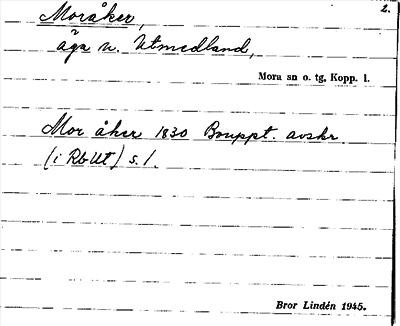 2.
Moråker,
äga n. Utmedland,
Mora sn o. tg, Kopp. l.
Mor åker 1830 Bouppt. avskr
(i RbUt) s. 1.
Bror Lindén 1945.